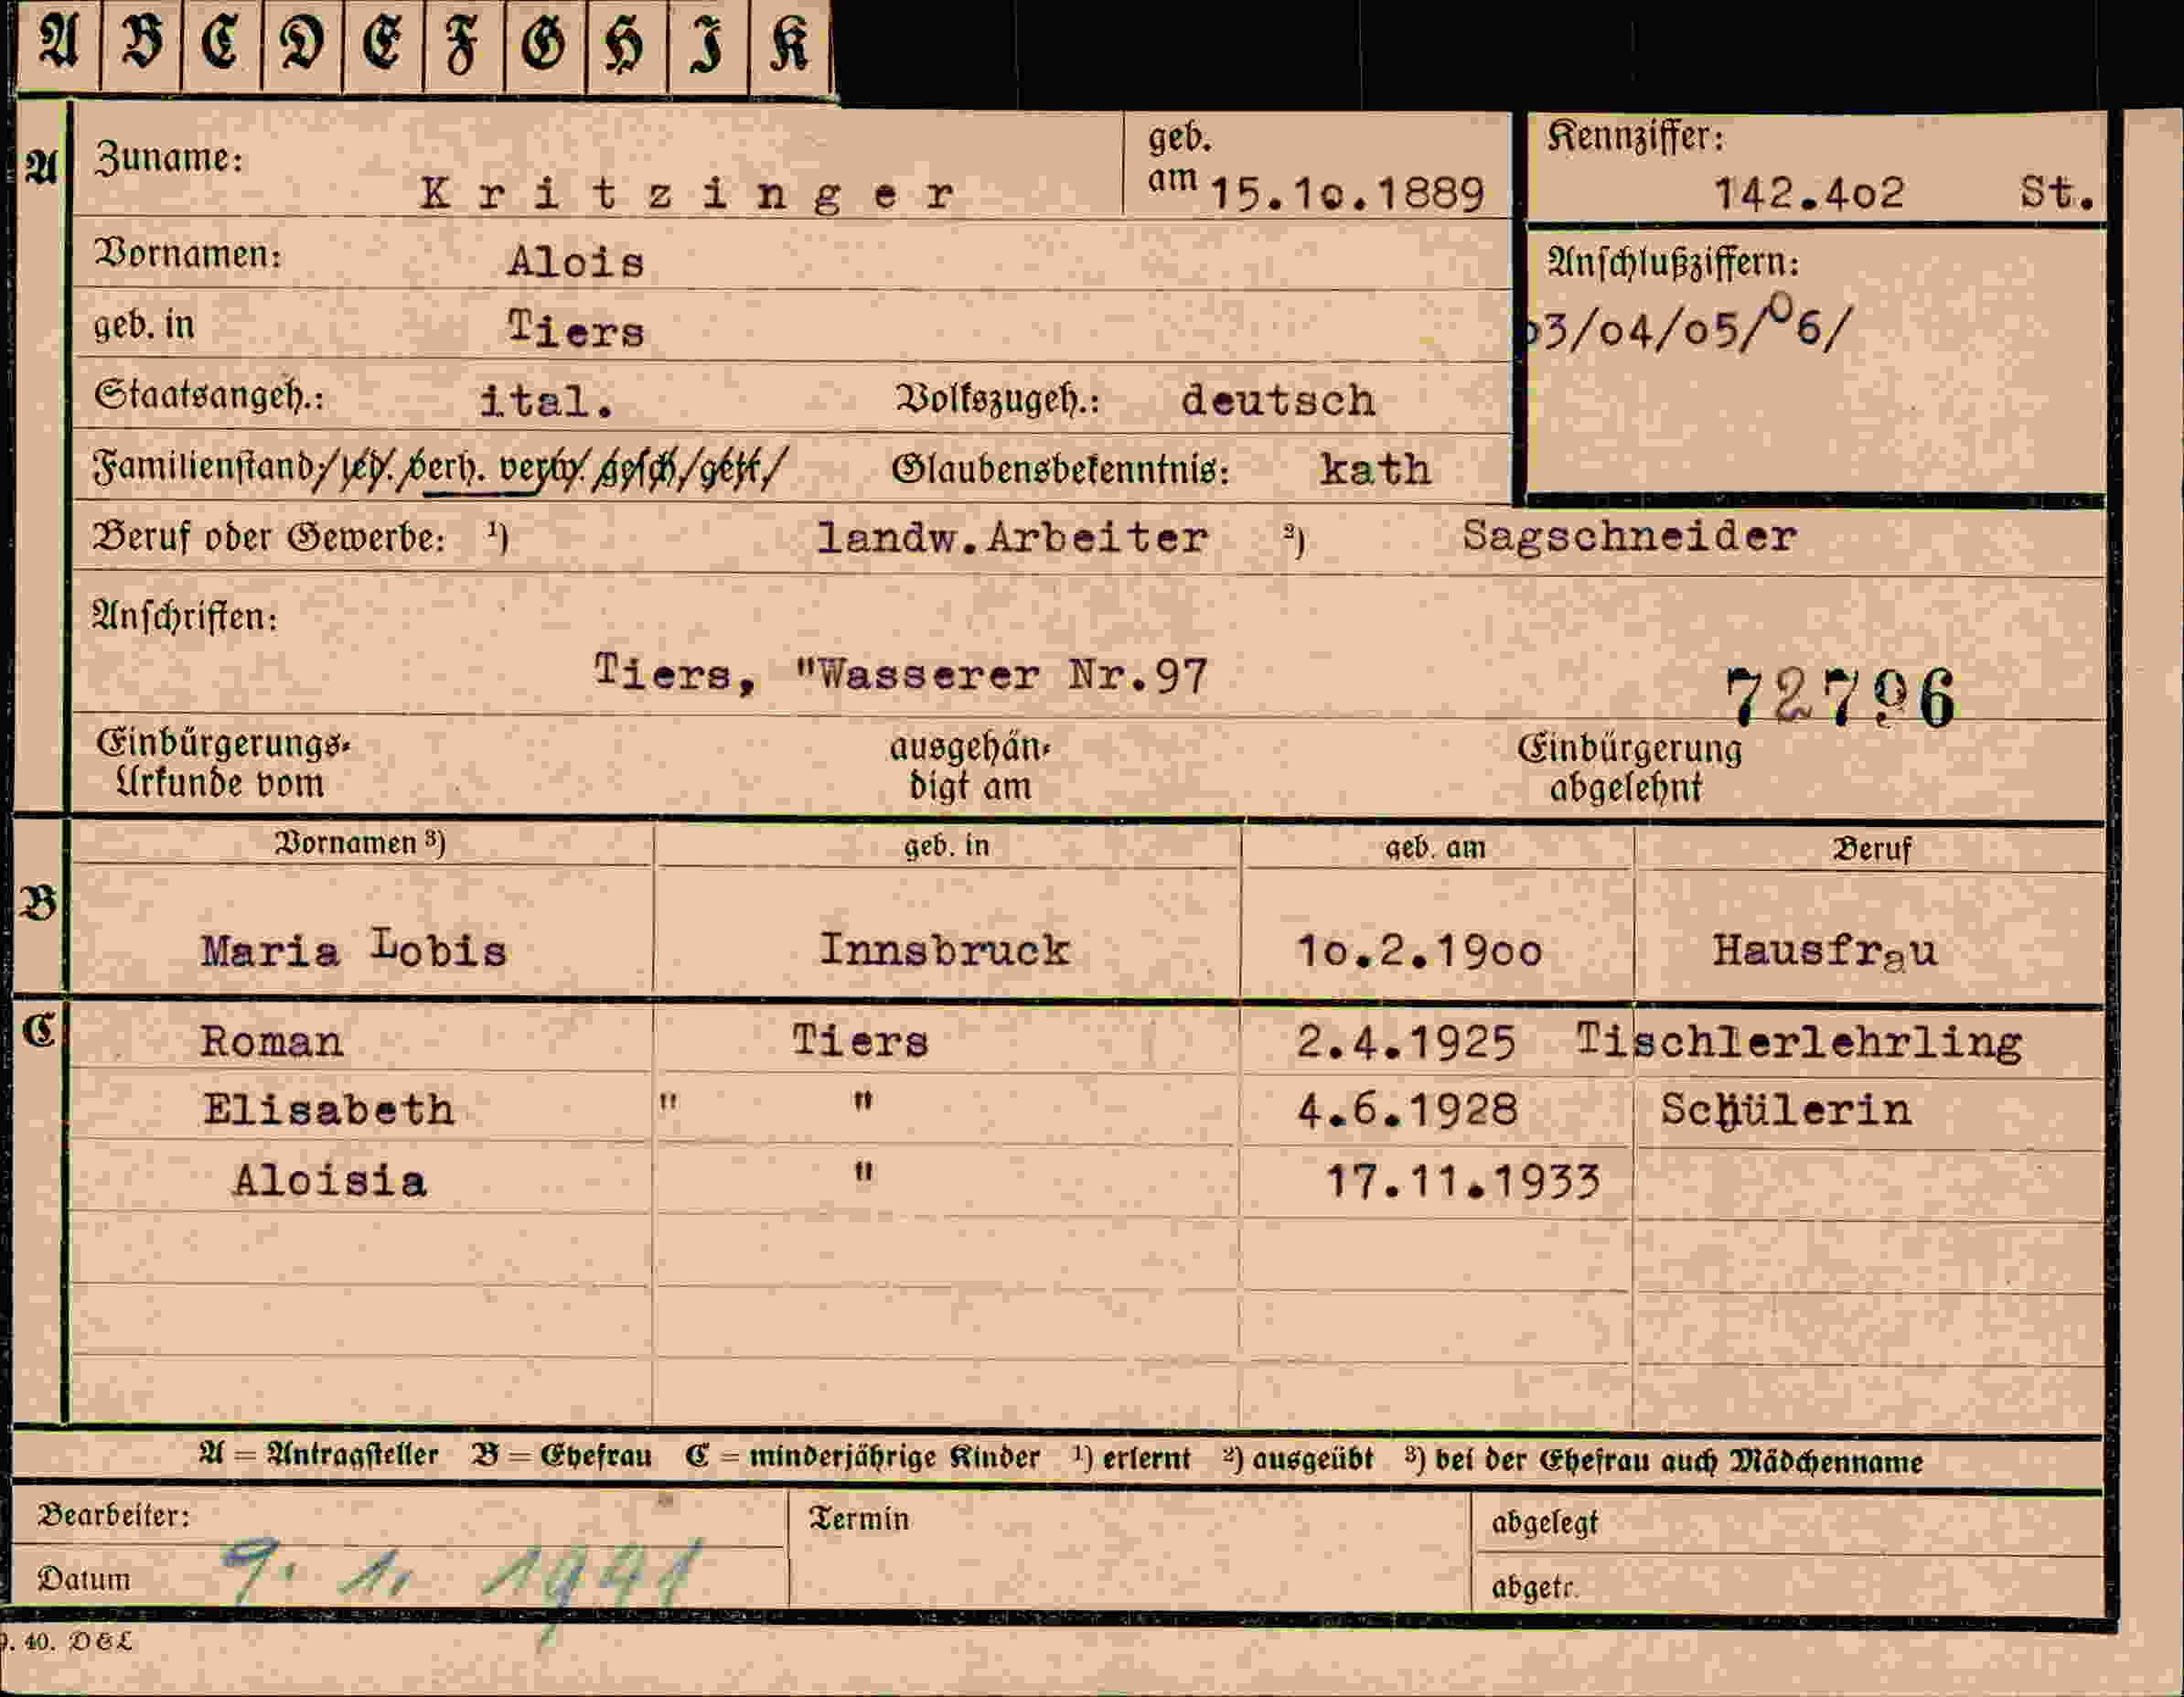 A B C D E F G H I K
A Zuname: Kritzinger geb. am 15.1o.1889 Kennziffer: 142.4o2 St.
Vornamen: Alois Anschlußziffern:
geb. in Tiers o3/o4/o5/o6/
Staatsangeh.: ital. Volkszugeh.: deutsch
Familienstand: led. verh. verw. gesch. getr. Glaubensbekenntnis: kath
Beruf oder Gewerbe: ¹) landw.Arbeiter ²) Sagschneider
Anschriften:
Tiers, "Wasserer Nr.97 72796
Einbürgerungs- ausgehän- Einbürgerung
Urkunde vom digt am abgelehnt
Vornamen ³) geb. in geb. am Beruf
B Maria Lobis Innsbruck 1o.2.19oo Hausfrau
C Roman Tiers 2.4.1925 Tischlerlehrling
Elisabeth " " 4.6.1928 Schülerin
Aloisia " 17.11.1933
A = Antragsteller B = Ehefrau C = minderjährige Kinder ¹) erlernt ²) ausgeübt ³) bei der Ehefrau auch Mädchenname
Bearbeiter: Termin abgelegt
Datum 9. 1. 1941 abgetr.
9. 40. DEL